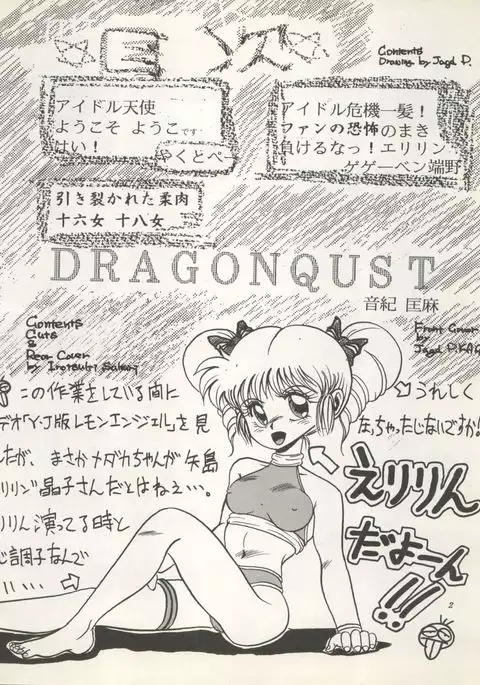 目次
Contents
Drawing by Jagd P.
アイドル天使
ようこそ ようこです
はい!
やくとぺー
アイドル危機一髪!
ファンの恐怖のまき
負けるなっ!エリリン
ゲゲーベン端野
引き裂かれた柔肉
十六女 十八女
DRAGONQUST
音紀 匡麻
Contents
Cuts
&
Rear Cover
by
Front Cover
by
この作業をしている間に
デオ「Y・J版レモンエンジェル」を見
したが、まさかメダカちゃんが矢島
晶子さんだとはねえ…。
りりん演ってる時と
じ調子なんで
うれしく
なっちゃったじゃないですか!
えりりん
だよーん
!!
2